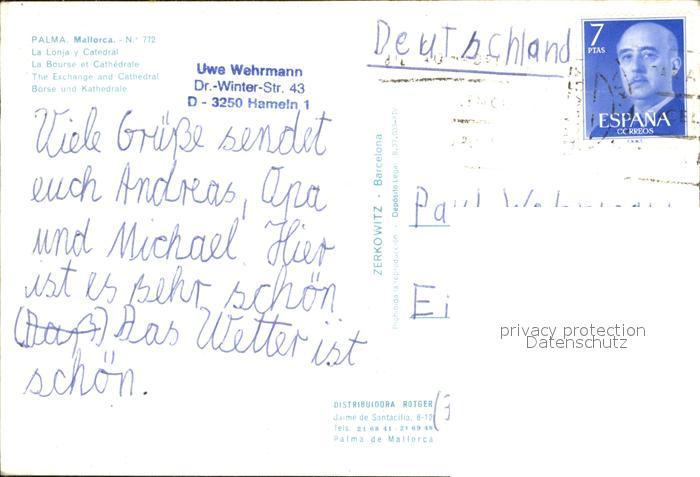 PALMA. Mallorca. - N.º 772
La Lonja y Catedral
La Bourse et Cathédrale
The Exchange and Cathedral
Börse und Kathedrale
Uwe Wehrmann
Dr.-Winter-Str. 43
D - 3250 Hameln 1
Deutschland
7
PTAS
ESPAÑA
CORREOS
Viele Grüße sendet
euch Andreas, Opa
und Michael. Hier
ist es sehr schön
(Daß) Das Wetter ist
schön.
ZERKOWITZ - Barcelona
Prohibida la reproducción - Depósito Legal
Paul
Ei
privacy protection
Datenschutz
DISTRIBUIDORA ROTGER
Jaime de Santacilia, 8-10
Tels. 21 68 41 - 21 69 48
Palma de Mallorca